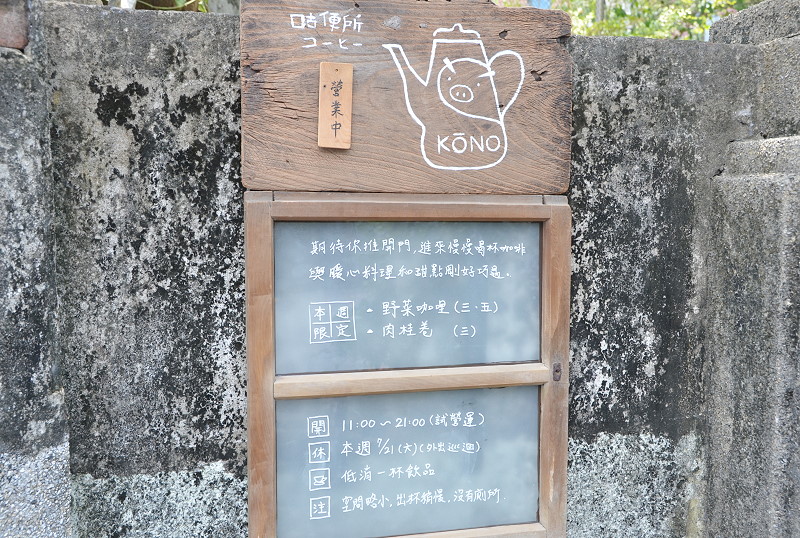 咕便所
コーヒー
營業中
KŌNO
期待你推開門,進來慢慢喝杯咖啡
與暖心料理和甜點剛好巧遇。
本週限定
- 野菜咖哩(三.五)
- 肉桂卷 (三)
開 11:00~21:00(試營運)
休 本週 7/21 (大)(外出巡迴)
低消一杯飲品
注 空間略小,出杯稍慢,沒有廁所.